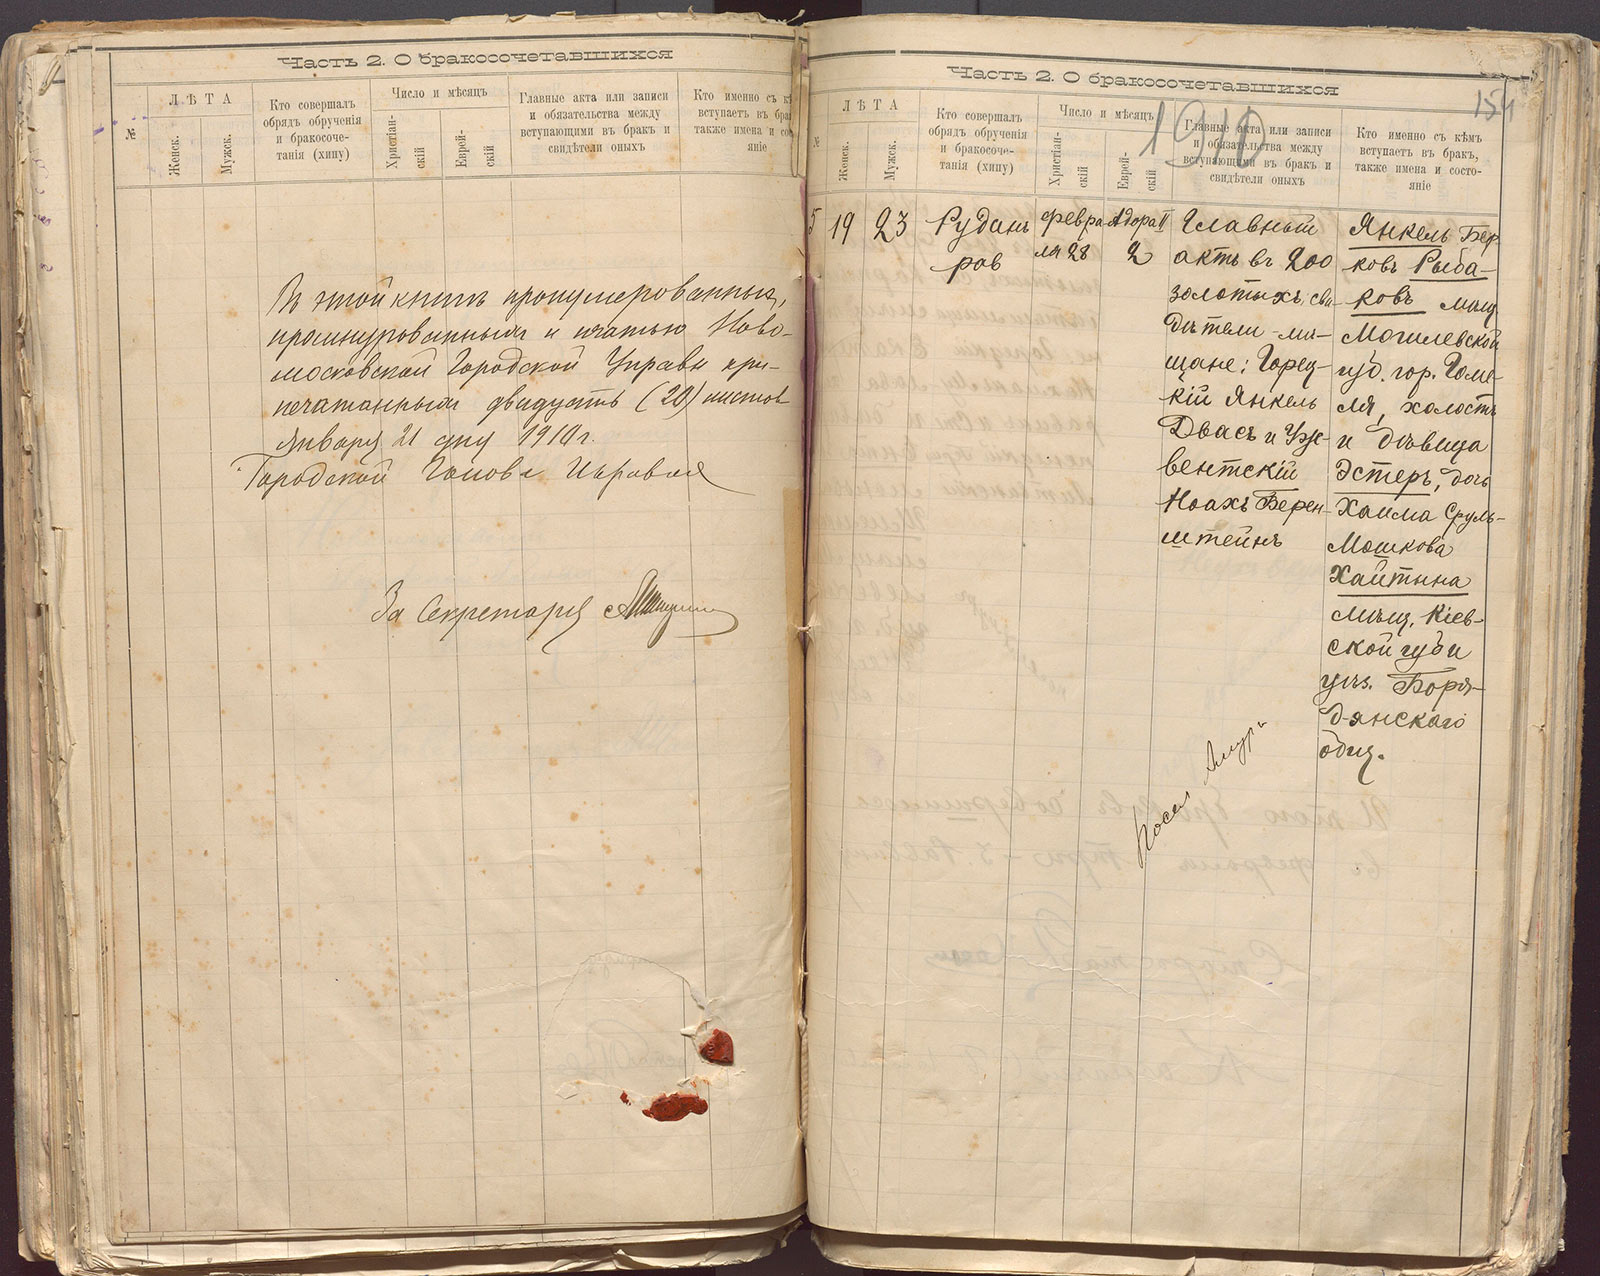 Часть 2. О бракосочетавшихся
№
ЛѢТА
Женск.
Мужск.
Кто совершалъ
обрядъ обрученія
и бракосоче-
танія (хипу)
Число и мѣсяцъ
Христіан-
скій
Еврей-
скій
Главные акта или записи
и обязательства между
вступающими въ бракъ и
свидѣтели оныхъ
Кто именно съ
вступаетъ въ
также имена и
яніе
Въ этой книгѣ пронумерованныхъ,
прошнурованныхъ и печатью Ново-
московской Городской Управы при-
печатанныхъ двадцать (20) листовъ
Января 21 дня 1910 г.
Городской Голова
За Секретаря
Часть 2. О бракосочетавшихся
154
1910
№
ЛѢТА
Женск.
Мужск.
Кто совершалъ
обрядъ обрученія
и бракосоче-
танія (хипу)
Число и мѣсяцъ
Христіан-
скій
Еврей-
скій
Главные акта или записи
и обязательства между
вступающими въ бракъ и
свидѣтели оныхъ
Кто именно съ кѣмъ
вступаетъ въ бракъ,
также имена и состо-
яніе
5
19
23
Рудаш
ров
февра
ля 28
Адора II
2
Главный
актъ въ 200
золотыхъ, сви-
дѣтели - мѣ-
щане: Горец-
кій Янкель
Двасъ и Уж-
вентскій
Ноахъ Берен-
штейнъ
Янкель Бер-
ковъ Рыба-
ковъ мѣщ.
Могилевской
губ. гор. Гоме-
ля, холостъ
и дѣвица
Эстеръ, дочь
Хаима Сруль-
Мошкова
Хайтина
мѣщ. Кіев-
ской губ. и
уѣз. Бородя-
дянскаго
общ.